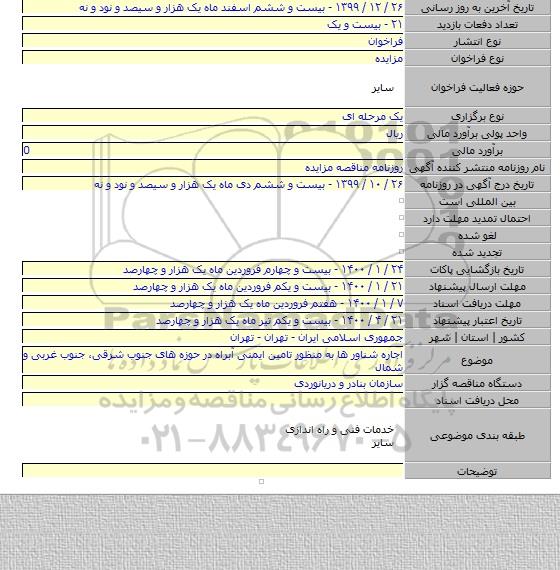 تاریخ آخرین به روز رسانی ۲۶ / ۱۲ / ۱۳۹۹ - بیست و ششم اسفند ماه یک هزار و سیصد و نود و نه
تعداد دفعات بازدید ۲۱ - بیست و یک
نوع انتشار فراخوان
نوع فراخوان مزایده
حوزه فعالیت فراخوان سایر
نوع برگزاری یک مرحله ای
واحد پولی برآورد مالی ریال
برآورد مالی 0
نام روزنامه منتشر کننده آگهی روزنامه مناقصه مزایده
تاریخ درج آگهی در روزنامه ۲۶ / ۱۰ / ۱۳۹۹ - بیست و ششم دی ماه یک هزار و سیصد و نود و نه
بین المللی است
احتمال تمدید مهلت دارد
لغو شده
تجدید شده
تاریخ بازگشایی پاکات ۲۴ / ۱ / ۱۴۰۰ - بیست و چهارم فروردین ماه یک هزار و چهارصد
مهلت ارسال پیشنهاد ۲۱ / ۱ / ۱۴۰۰ - بیست و یکم فروردین ماه یک هزار و چهارصد
مهلت دریافت اسناد ۷ / ۱ / ۱۴۰۰ - هفتم فروردین ماه یک هزار و چهارصد
تاریخ اعتبار پیشنهاد ۲۱ / ۴ / ۱۴۰۰ - بیست و یکم تیر ماه یک هزار و چهارصد
کشور | استان | شهر جمهوری اسلامی ایران - تهران - تهران
موضوع اجاره شناور ها به منظور تامین ایمنی آبراه در حوزه های جنوب شرقی، جنوب غربی و
شمال
دستگاه مناقصه گزار سازمان بنادر و دریانوردی
محل دریافت اسناد
طبقه بندی موضوعی خدمات فنی و راه اندازی
سایر
توضیحات
پایگاه اطلاع رسانی مناقصه و مزایده
۰۲۱-۸۸۳۴۹۶۷۰-۵